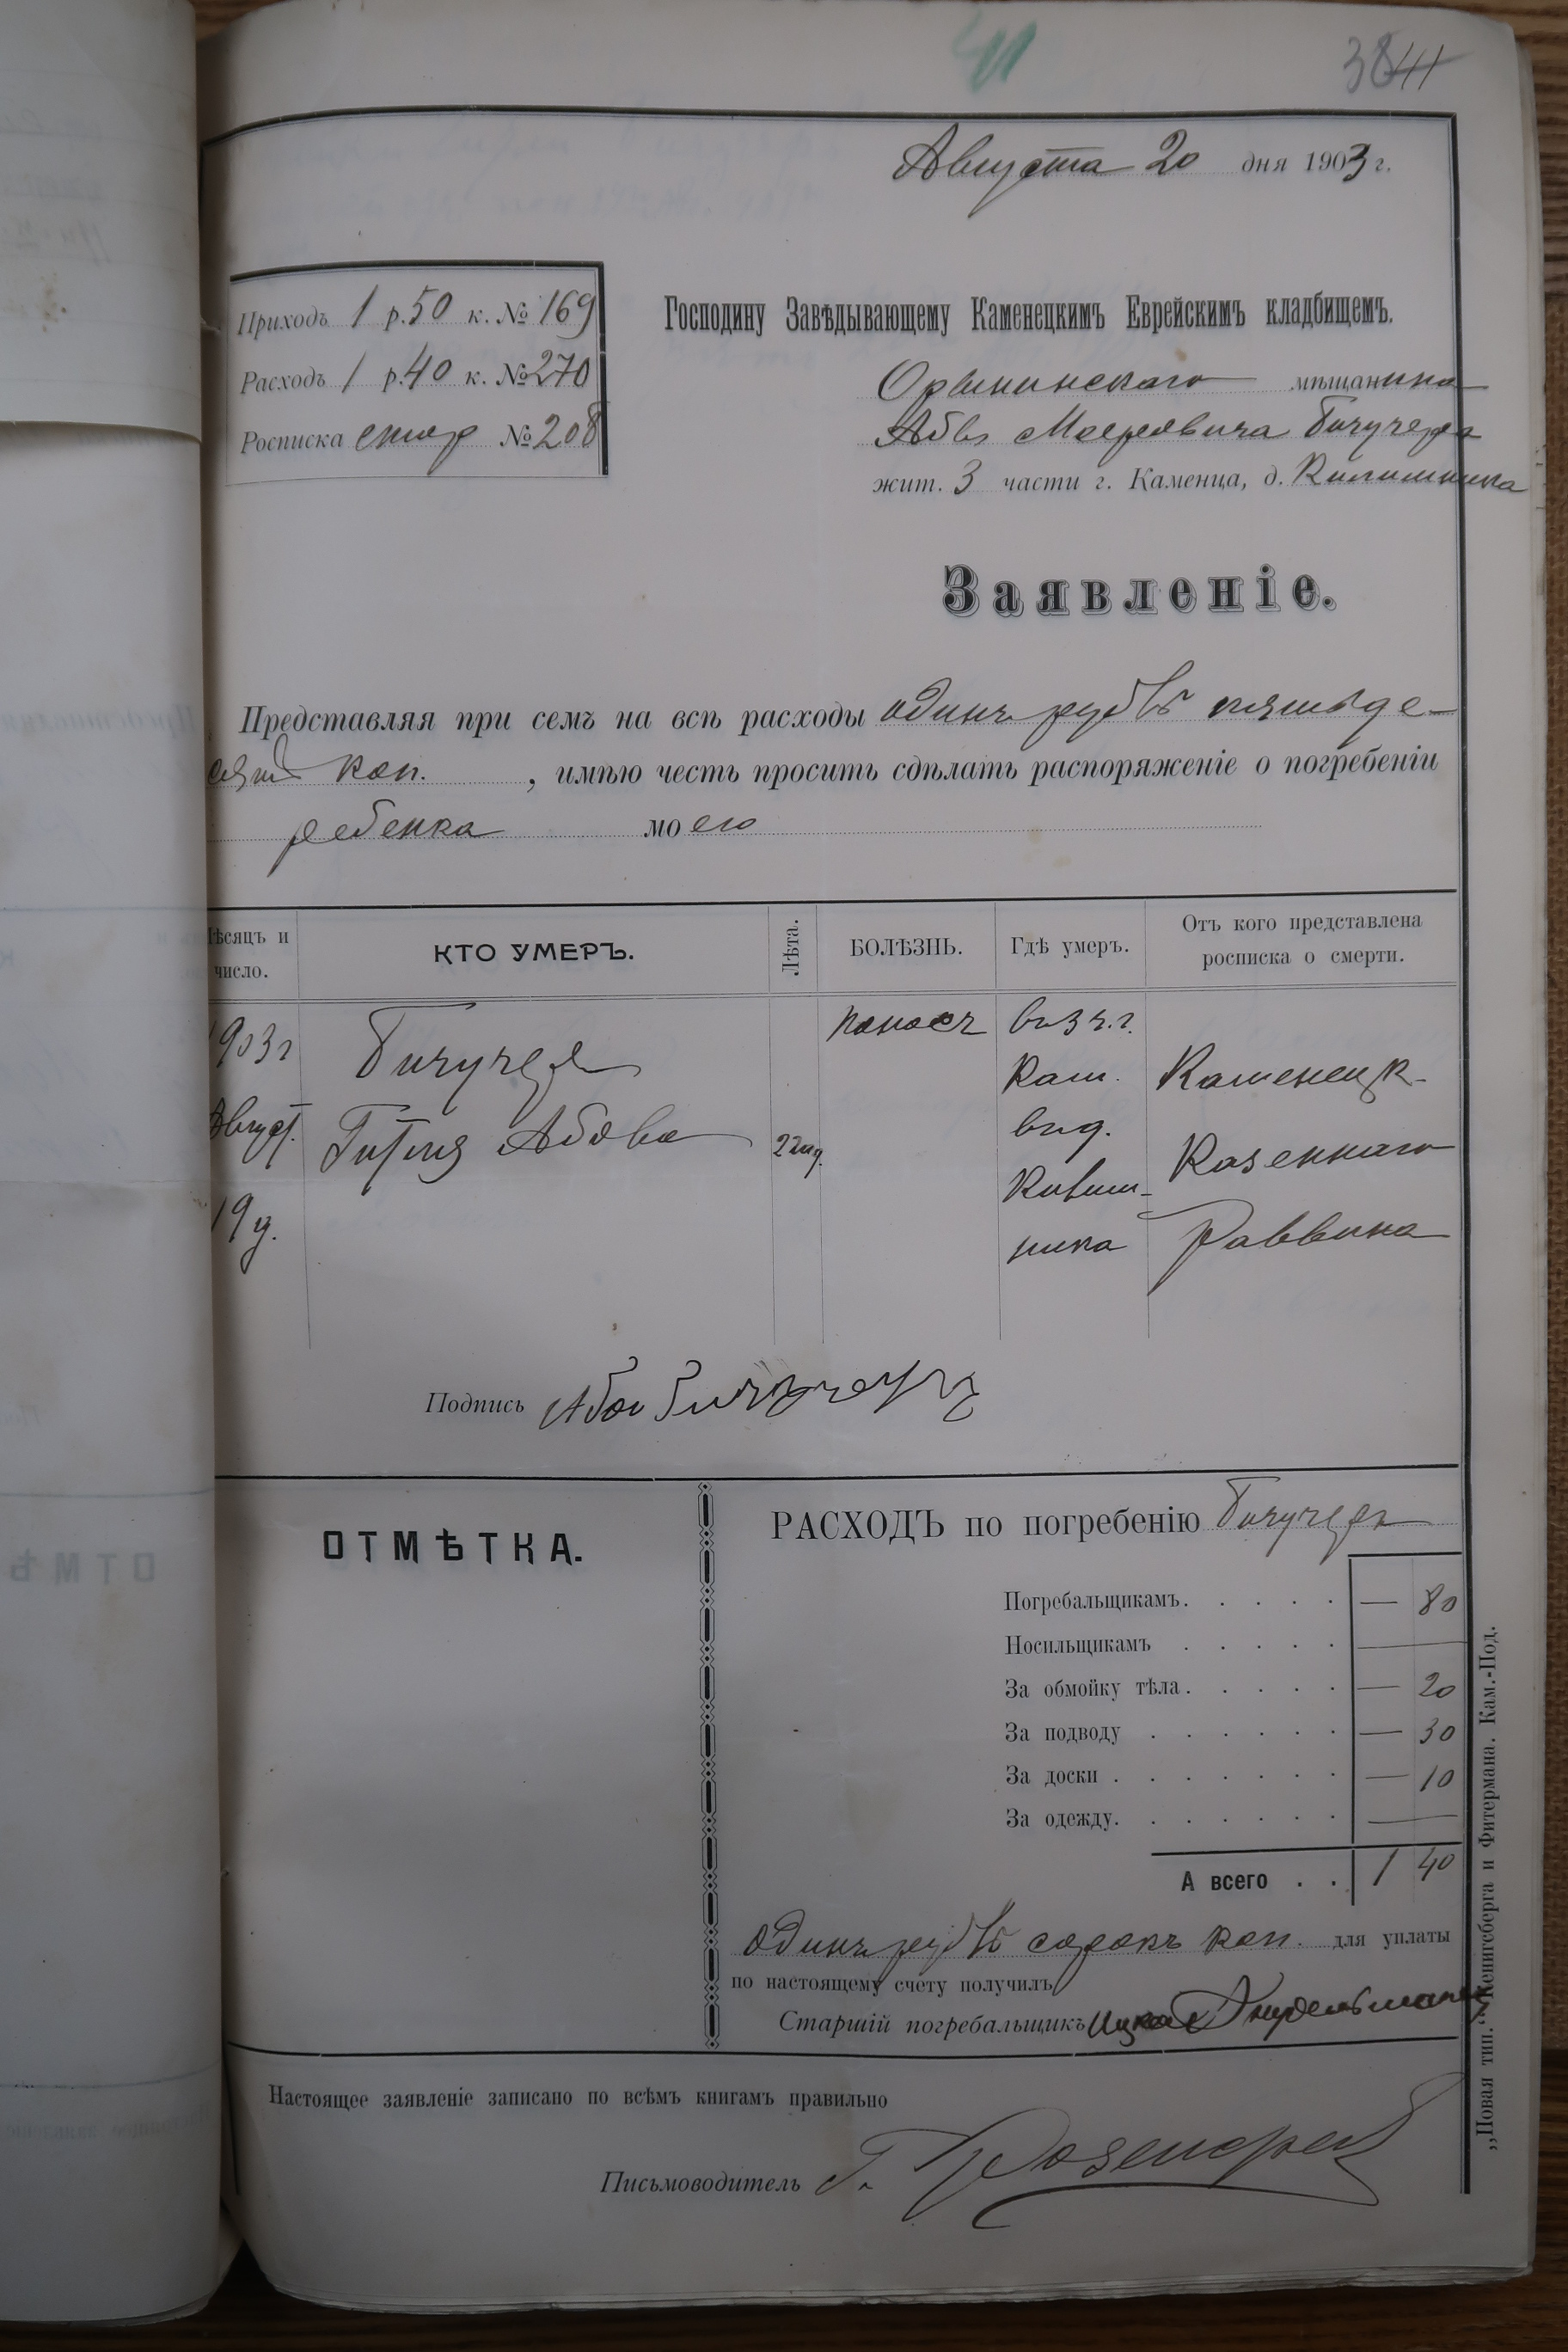 41
38 41
Августа 20 дня 1903 г.
Приходъ 1 р. 50 к. № 169
Расходъ 1 р. 40 к. № 270
Росписка стар № 208
Господину Завѣдывающему Каменецкимъ Еврейскимъ кладбищемъ.
мѣщанина
жит. 3 части г. Каменца, д.
Заявленіе.
Представляя при семъ на всѣ расходы одинъ рубль пятьде-
сятъ коп. , имѣю честь просить сдѣлать распоряженіе о погребеніи
ребенка моего
Мѣсяцъ и число. КТО УМЕРЪ. Лѣта. БОЛѢЗНЬ. Гдѣ умеръ. Отъ кого представлена росписка о смерти.
1903 г Август. 19 д.
Гитля Абова
поносъ
въ 3 ч. г. Кам. въ д.
Каменецк. Казеннаго Раввина
Подпись
ОТМѢТКА.
РАСХОДЪ по погребенію
Погребальщикамъ. — 80
Носильщикамъ —
За обмойку тѣла. — 20
За подводу — 30
За доски — 10
За одежду. —
А всего 1 40
одинъ рубль сорокъ коп. для уплаты
по настоящему счету получилъ
Старшій погребальщикъ
Настоящее заявленіе записано по всѣмъ книгамъ правильно
Письмоводитель
„Новая тип.“ Кенигсберга и Фитермана. Кам.-Под.